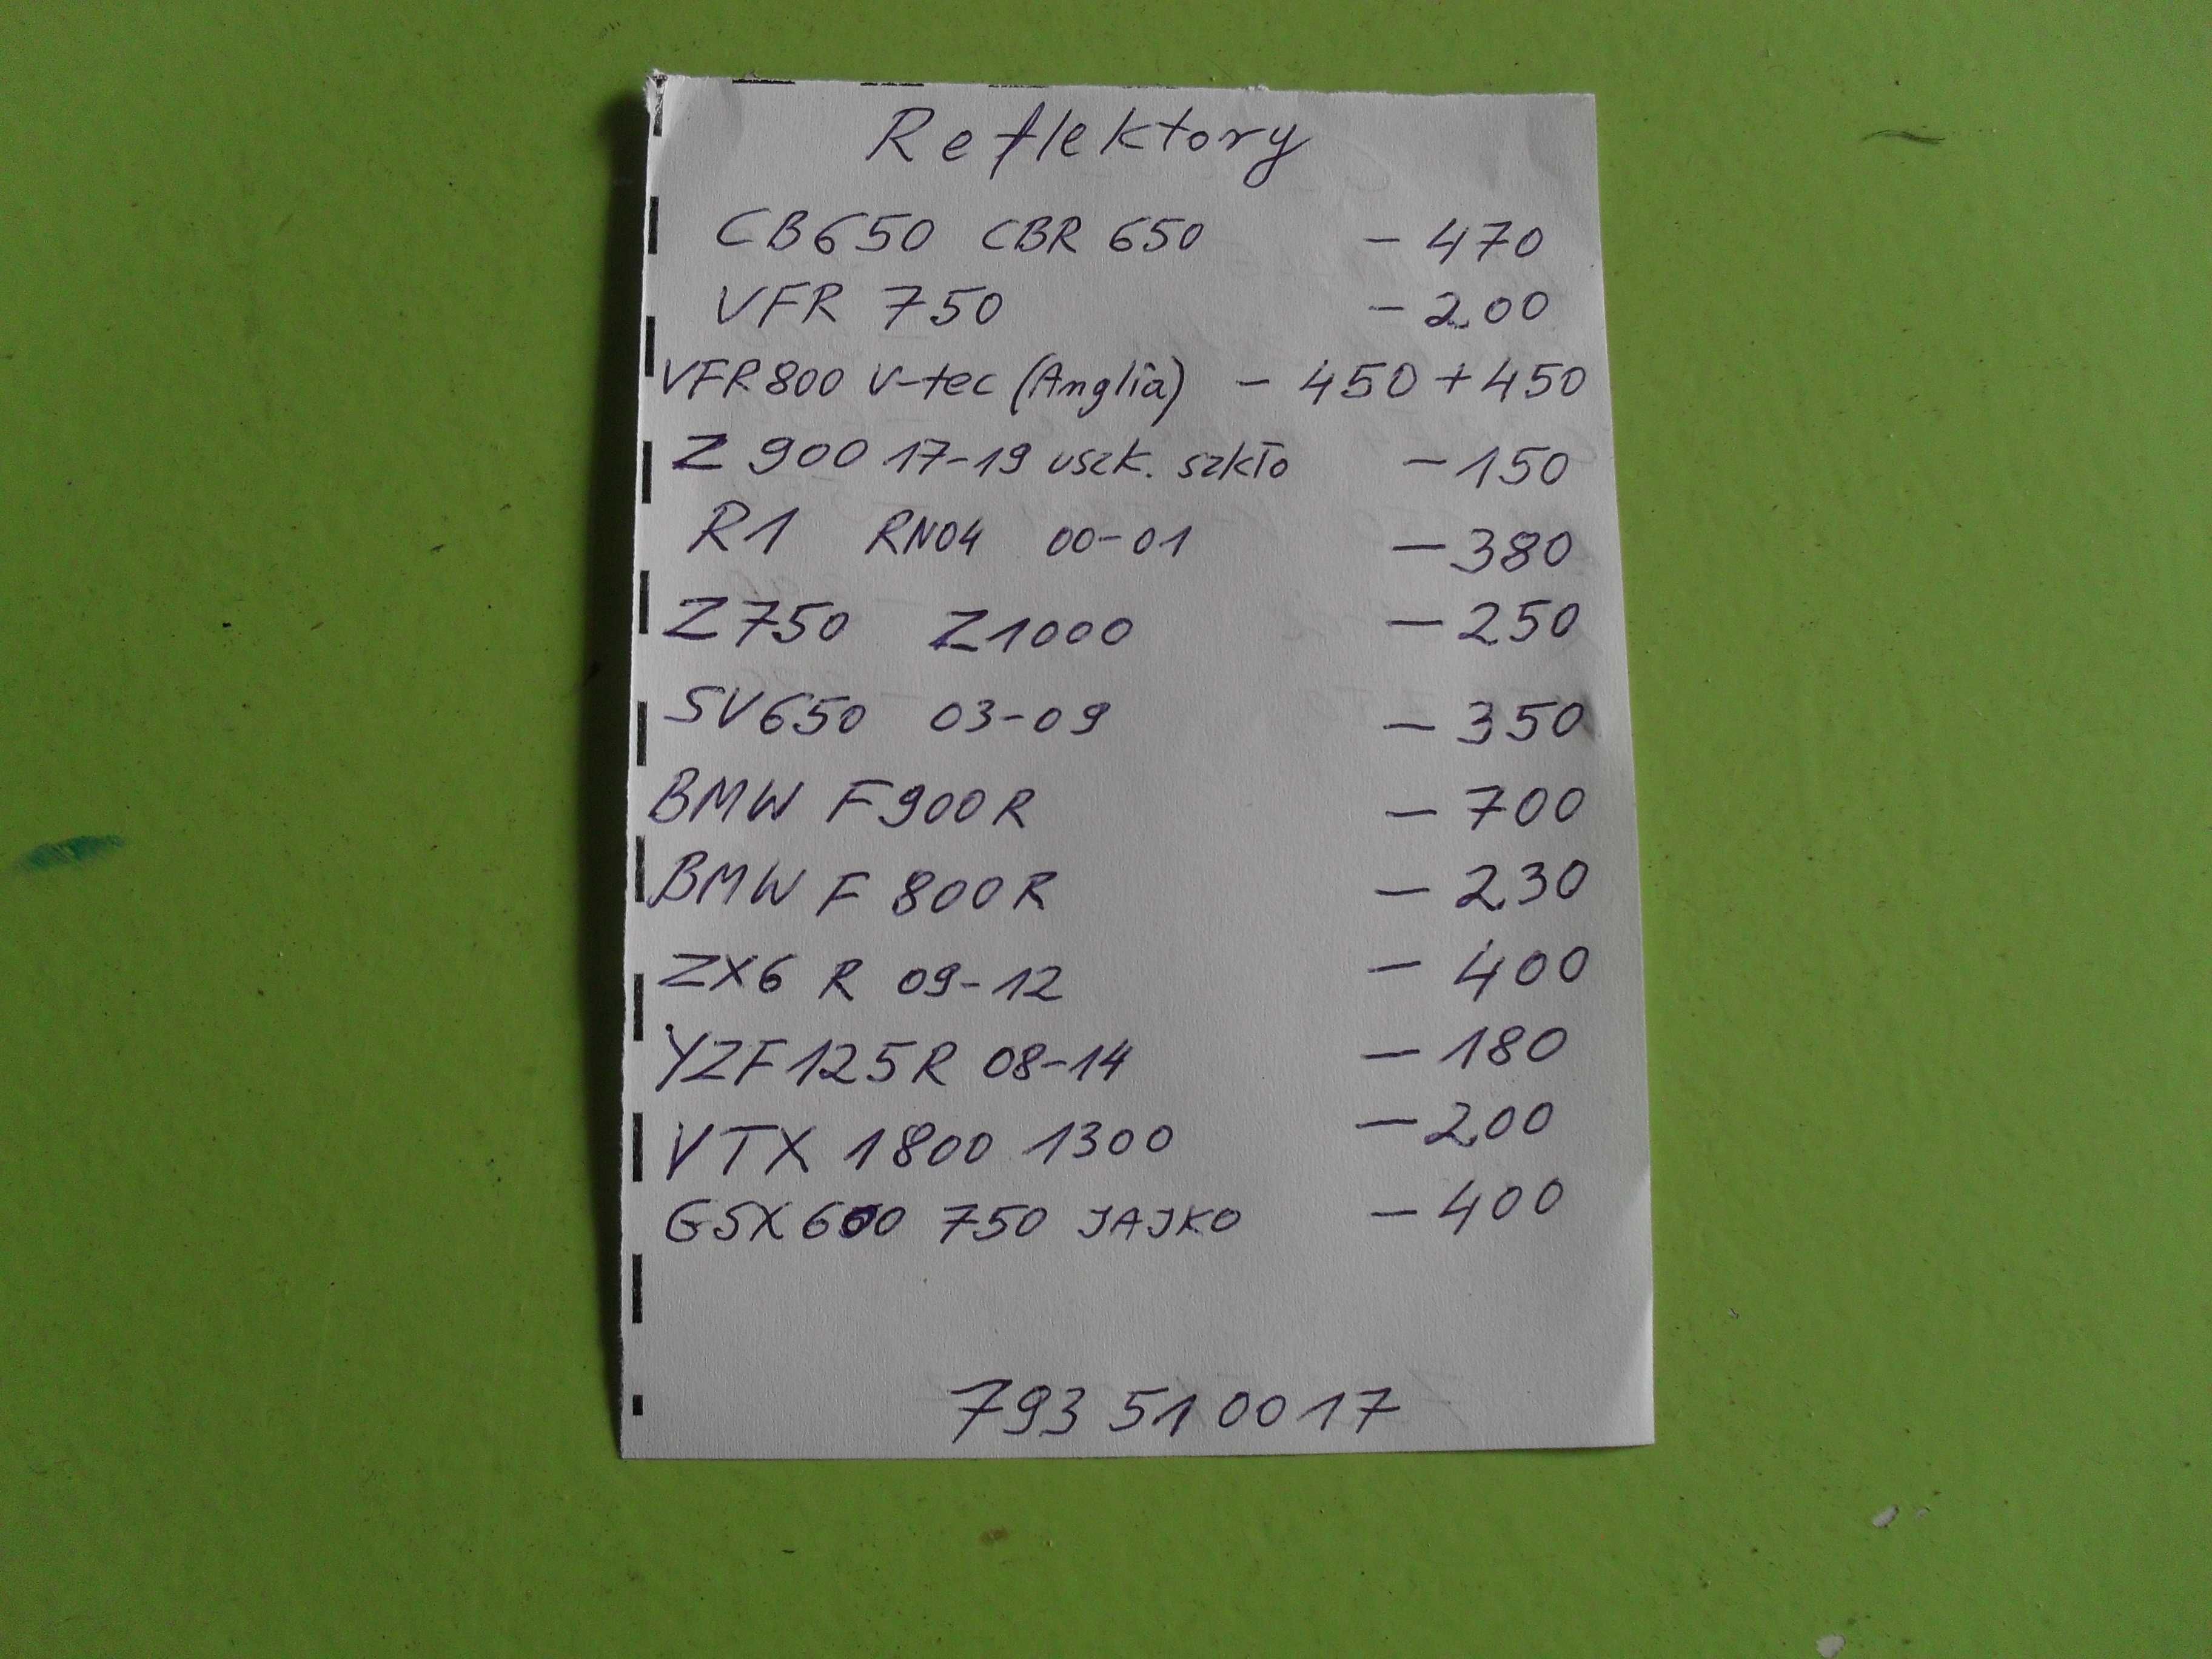 Reflektory
CB650 CBR 650 - 470
VFR 750 - 200
VFR800 V-tec (Anglia) - 450 + 450
Z 900 17-19 uszk. szkło - 150
R1 RN04 00-01 - 380
Z750 Z1000 - 250
SV650 03-09 - 350
BMW F900R - 700
BMW F 800R - 230
ZX6 R 09-12 - 400
YZF125R 08-14 - 180
VTX 1800 1300 - 200
GSX600 750 JAJKO - 400
793 510017